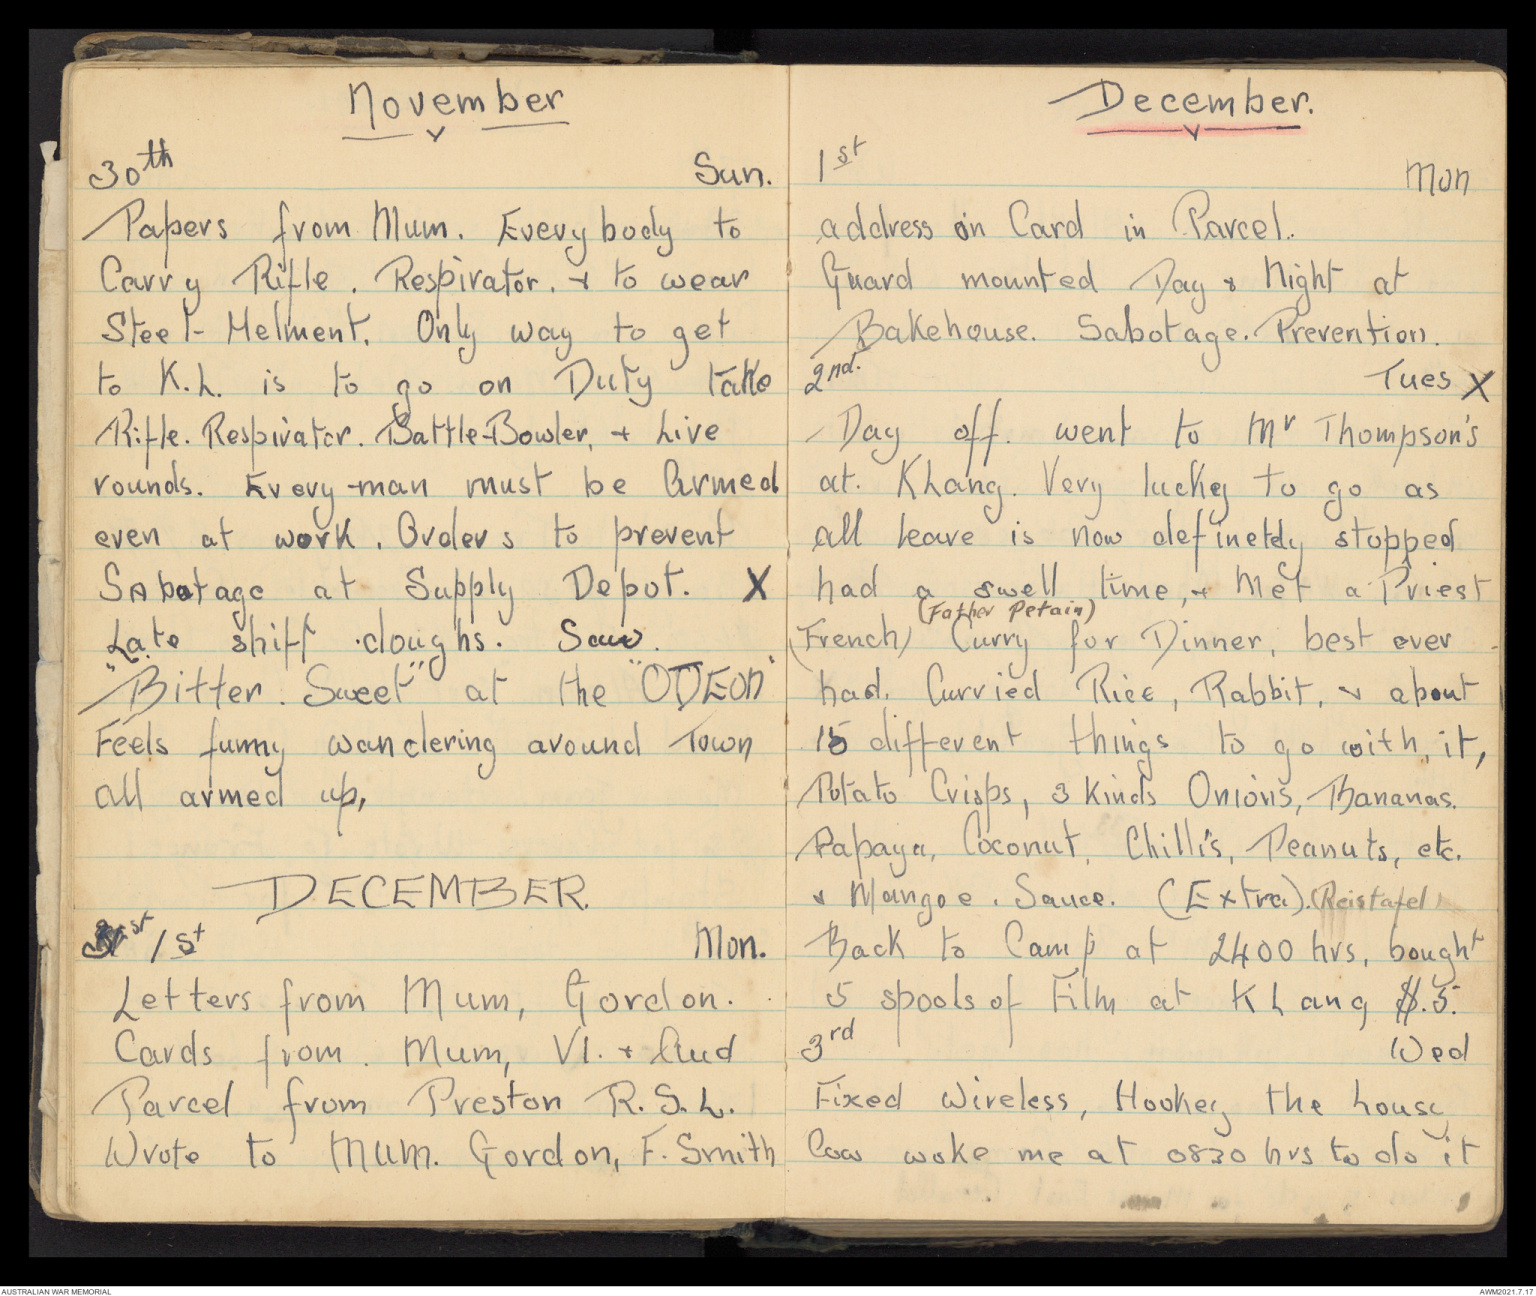 November
30th Sun.
Papers from Mum. Everybody to
Carry Rifle. Respirator. + to wear
Steel-Helment. Only way to get
to K.L. is to go on Duty take
Rifle. Respirator. Battle-Bowler, + Live
rounds. Every-man must be Armed
even at work. Orders to prevent
Sabotage at Supply Depot. X
Late shift doughs. Saw.
"Bitter. Sweet" at the "ODEON"
Feels funny wandering around Town
all armed up,
DECEMBER.
31st 1st Mon.
Letters from Mum, Gordon.
Cards from. Mum, VI. + Aud
Parcel from Preston R.S.L.
Wrote to Mum. Gordon, F. Smith
December.
1st Mon
address on Card in Parcel.
Guard mounted Day & Night at
Bakehouse. Sabotage. Prevention.
2nd. Tues X
Day off. went to Mr Thompson's
at. KLang. Very lucky to go as
all leave is now definetely stopped
had a swell time, + Met a Priest
(Father Petain)
(French) Curry for Dinner, best ever
had. Curried Rice, Rabbit, & about
15 different things to go with, it,
Potato Crisps, 3 Kinds Onions, Bananas.
Papaya, Coconut, Chilli's, Peanuts, etc.
& Mangoe. Sauce. (Extra). (Reistafel)
Back to Camp at 2400 hrs, bought
5 spools of Film at KLang $.5.
3rd Wed
Fixed Wireless, Hookey the housy
Cow woke me at 0830 hrs to do it
AUSTRALIAN WAR MEMORIAL
AWM2021.7.17